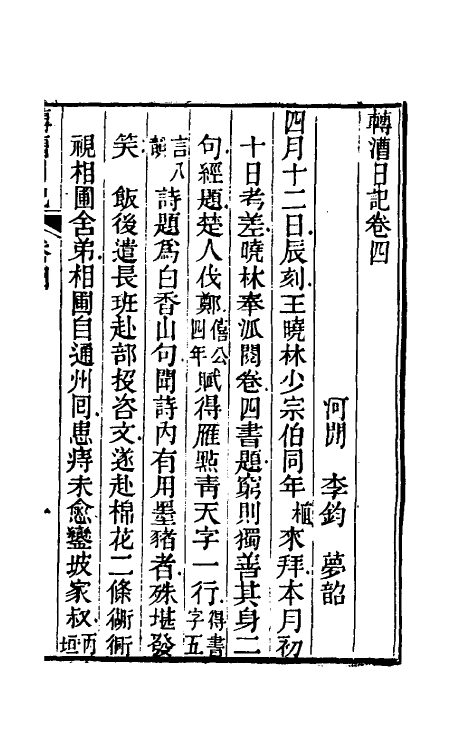 轉漕日記卷四
河間 李鈞 夢韶
四月十二日辰刻王曉林少宗伯同年植來拜本月初
十日考差曉林奉派閱卷四書題窮則獨善其身二
句經題楚人伐鄭僖公四年賦得雁點青天字一行得書字五
言八韻詩題為白香山句聞詩內有用墨豬者殊堪發
笑 飯後遣長班赴部投咨文遂赴棉花二條衚衕
視相圃舍弟相圃自通州囘患痔未愈鑾坡家叔丙垣
轉漕日記 卷四 一